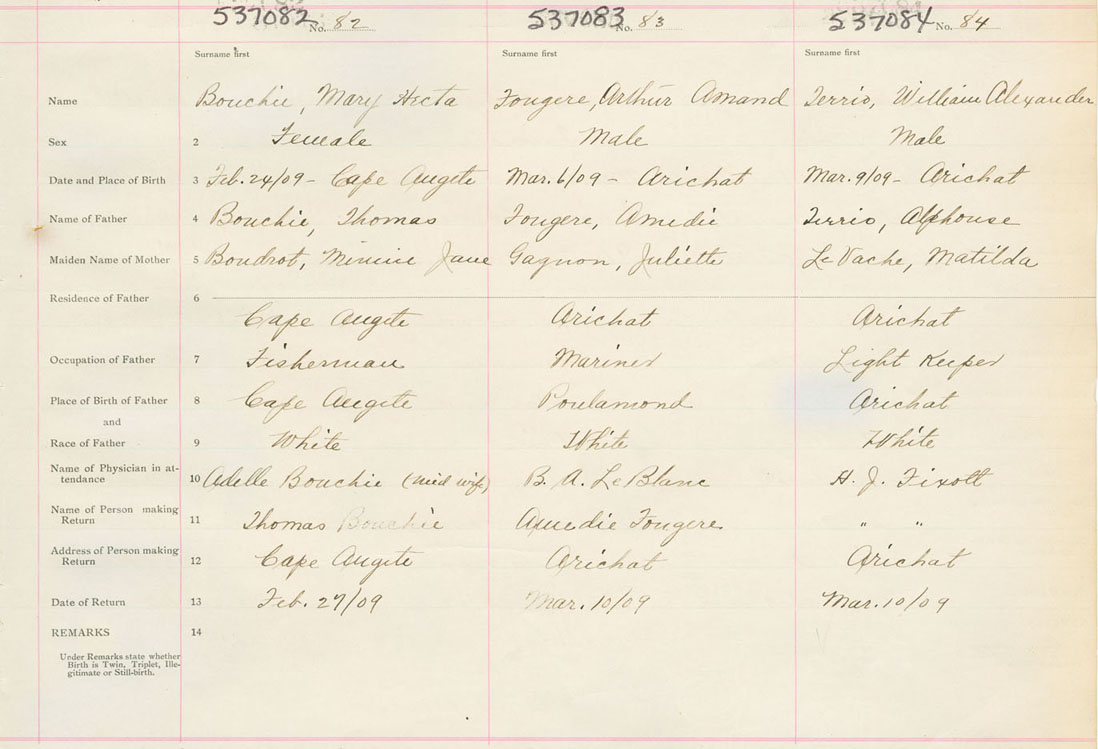 537082 No. 82 537083 No. 83 537084 No. 84
Surname first Surname first Surname first
Name Bouchie, Mary Hecta Fougere, Arthur Amand Terrio, William Alexander
Sex 2 Female Male Male
Date and Place of Birth 3 Feb. 24/09 - Cape Augete Mar. 6/09 - Arichat Mar. 9/09 - Arichat
Name of Father 4 Bouchie, Thomas Fougere, Amedie Terrio, Alphonse
Maiden Name of Mother 5 Boudrot, Minnie Jane Gagnon, Juliette LeVache, Matilda
Residence of Father 6
Cape Augete Arichat Arichat
Occupation of Father 7 Fisherman Mariner Light Keeper
Place of Birth of Father 8 Cape Augete Poulamond Arichat
and
Race of Father 9 White White White
Name of Physician in at-
tendance 10 Adelle Bouchie (mid wife) B. A. LeBlanc H. J. Fixott
Name of Person making
Return 11 Thomas Bouchie Amedie Fougere " "
Address of Person making
Return 12 Cape Augete Arichat Arichat
Date of Return 13 Feb. 27/09 Mar. 10/09 Mar. 10/09
REMARKS 14
Under Remarks state whether
Birth is Twin, Triplet, Ille-
gitimate or Still-birth.